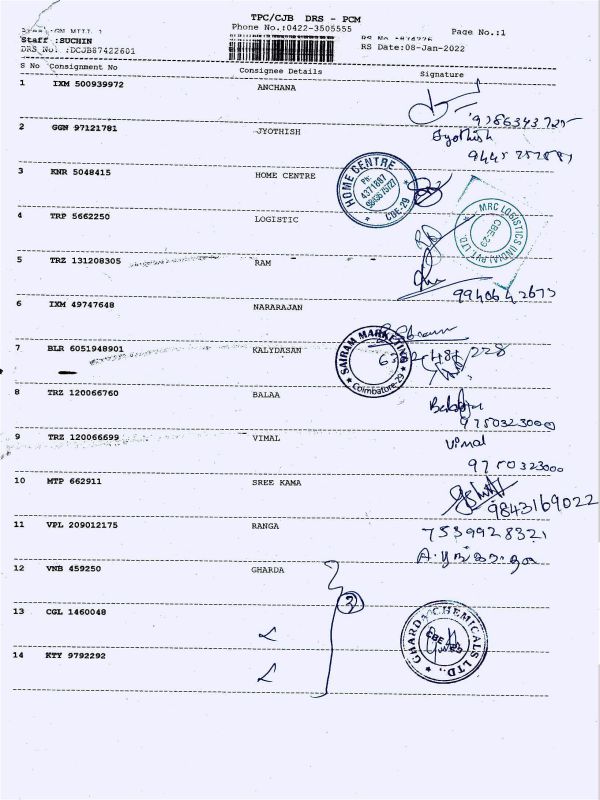 TPC/CJB DRS - PCM
Phone No.:0422-3505555 Page No.:1
Staff :SUCHIN
DRS No. :DCJB87422601 RS Date:08-Jan-2022
S No Consignment No Consignee Details Signature
1 IXM 500939972 ANCHANA
9786343725
2 GGN 97121781 JYOTHISH Jyothish
3 KNR 5048415 HOME CENTRE
HOME CENTRE
Ph:
4371887
CBE-29
4 TRP 5662250 LOGISTIC
MRC LOGISTICS (INDIA) PVT LTD
CBE-29
5 TRZ 131208305 RAM
9940642675
6 IXM 49747648 NARARAJAN
7 BLR 6051948901 KALYDASAN
SAIRAM MARKETING
Coimbatore-29
8 TRZ 120066760 BALAA
9750323000
9 TRZ 120066699 VIMAL Vimal
9750323000
10 MTP 662911 SREE KAMA
9843169022
11 VPL 209012175 RANGA 7539928321
12 VNB 459250 GHARDA
2
13 CGL 1460048
GHARDA CHEMICALS LTD.,
14 KTY 9792292